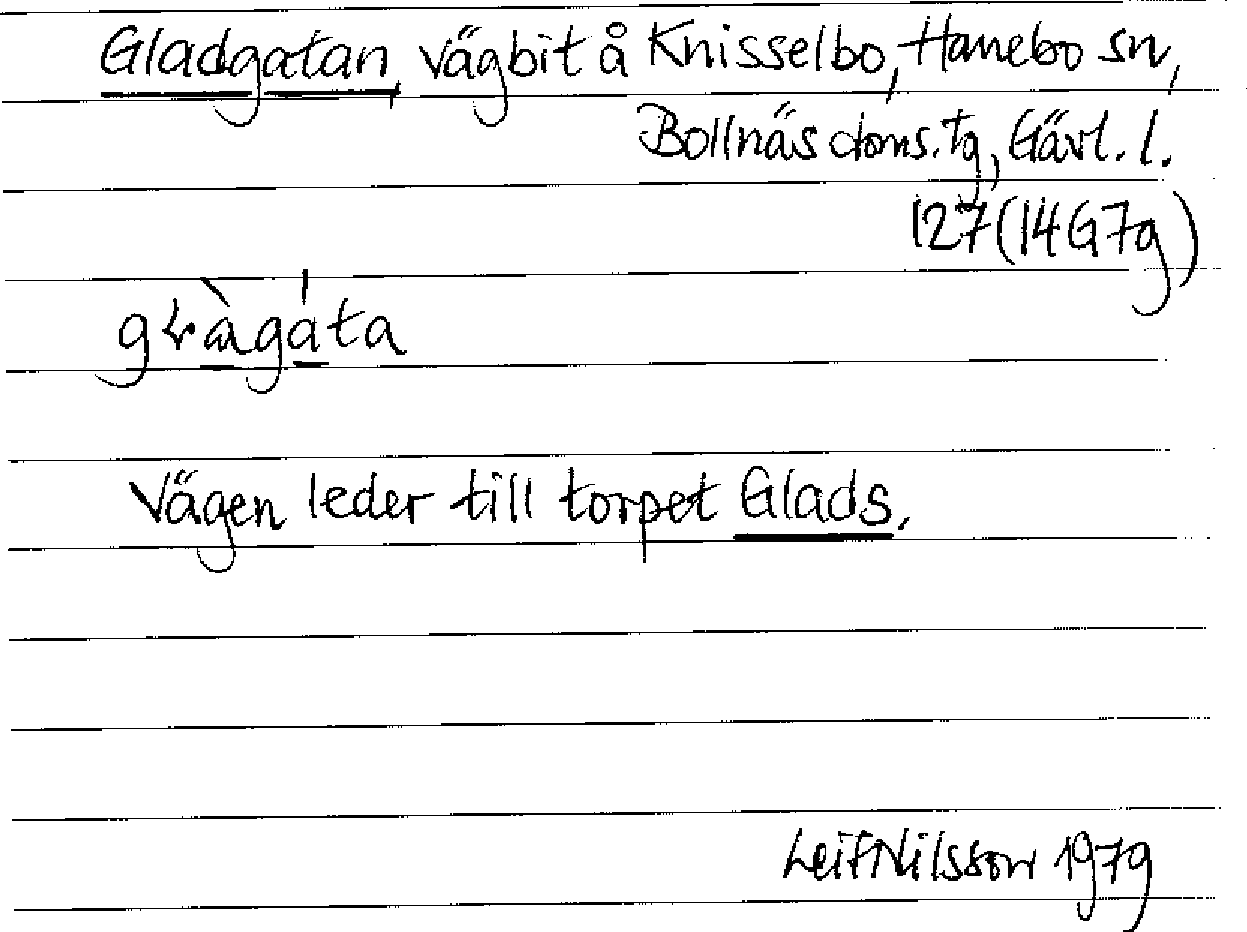 Gladgatan, vägbit å Knisselbo, Hanebo sn,
Bollnäs doms. tg, Gävl. l.
127 (14G7g)
gɽàgáta
Vägen leder till torpet Glads.
Leif Nilsson 1979